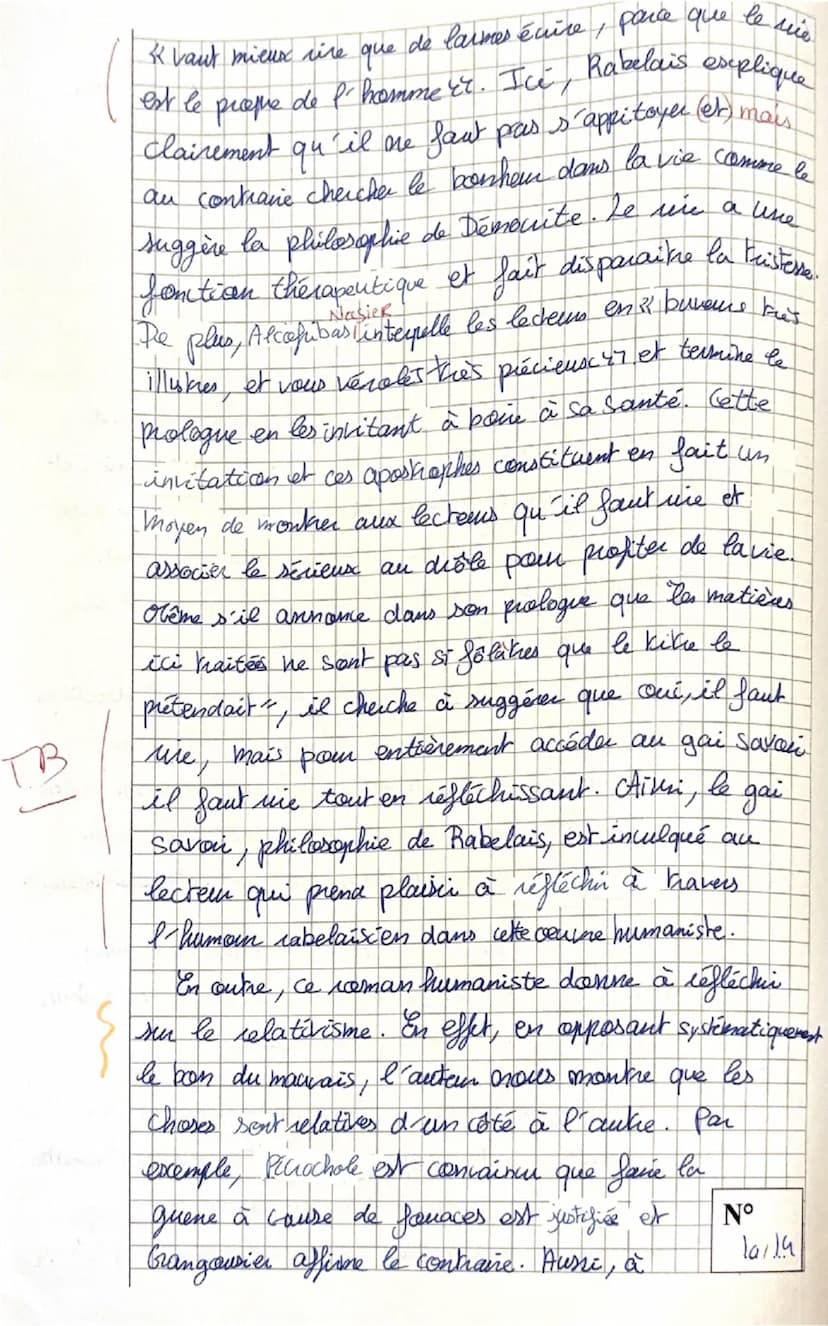 « Vaut mieux rire que de larmes écrire, parce que le rire
est le propre de l'homme ». Ici, Rabelais explique
clairement qu'il ne faut pas s'appitoyer (et) mais
au contraire chercher le bonheur dans la vie comme le
suggère la philosophie de Démocrite. Le rire a une
fonction thérapeutique et fait disparaitre la tristesse.
Nasier
De plus, Alcofribas interpelle les lecteurs en « buveurs très
illustres, et vous vérolés très précieux », et termine le
prologue en les invitant à boire à sa santé. Cette
invitation et ces apostrophes constituent en fait un
moyen de montrer aux lecteurs qu'il faut rire et
associer le sérieux au drôle pour profiter de la vie.
Même s'il annonce dans son prologue que "les matières
ici traitées ne sont pas si folâtres que le titre le
prétendait", il cherche à suggérer que oui, il faut
TB
rire, mais pour entièrement accéder au gai savoir
il faut rire tout en réfléchissant. Ainsi, le gai
savoir, philosophie de Rabelais, est inculqué au
lecteur qui prend plaisir à réfléchir à travers
l'humour rabelaisien dans cette oeuvre humaniste.
En outre, ce roman humaniste donne à réfléchir
sur le relativisme. En effet, en opposant systématiquement
le bon du mauvais, l'auteur nous montre que les
choses sont relatives d'un côté à l'autre. Par
exemple, Picrochole est convaincu que faire la
guerre à cause de fouaces est justifiée et
Grangousier affirme le contraire. Aussi, à
N°
10/14